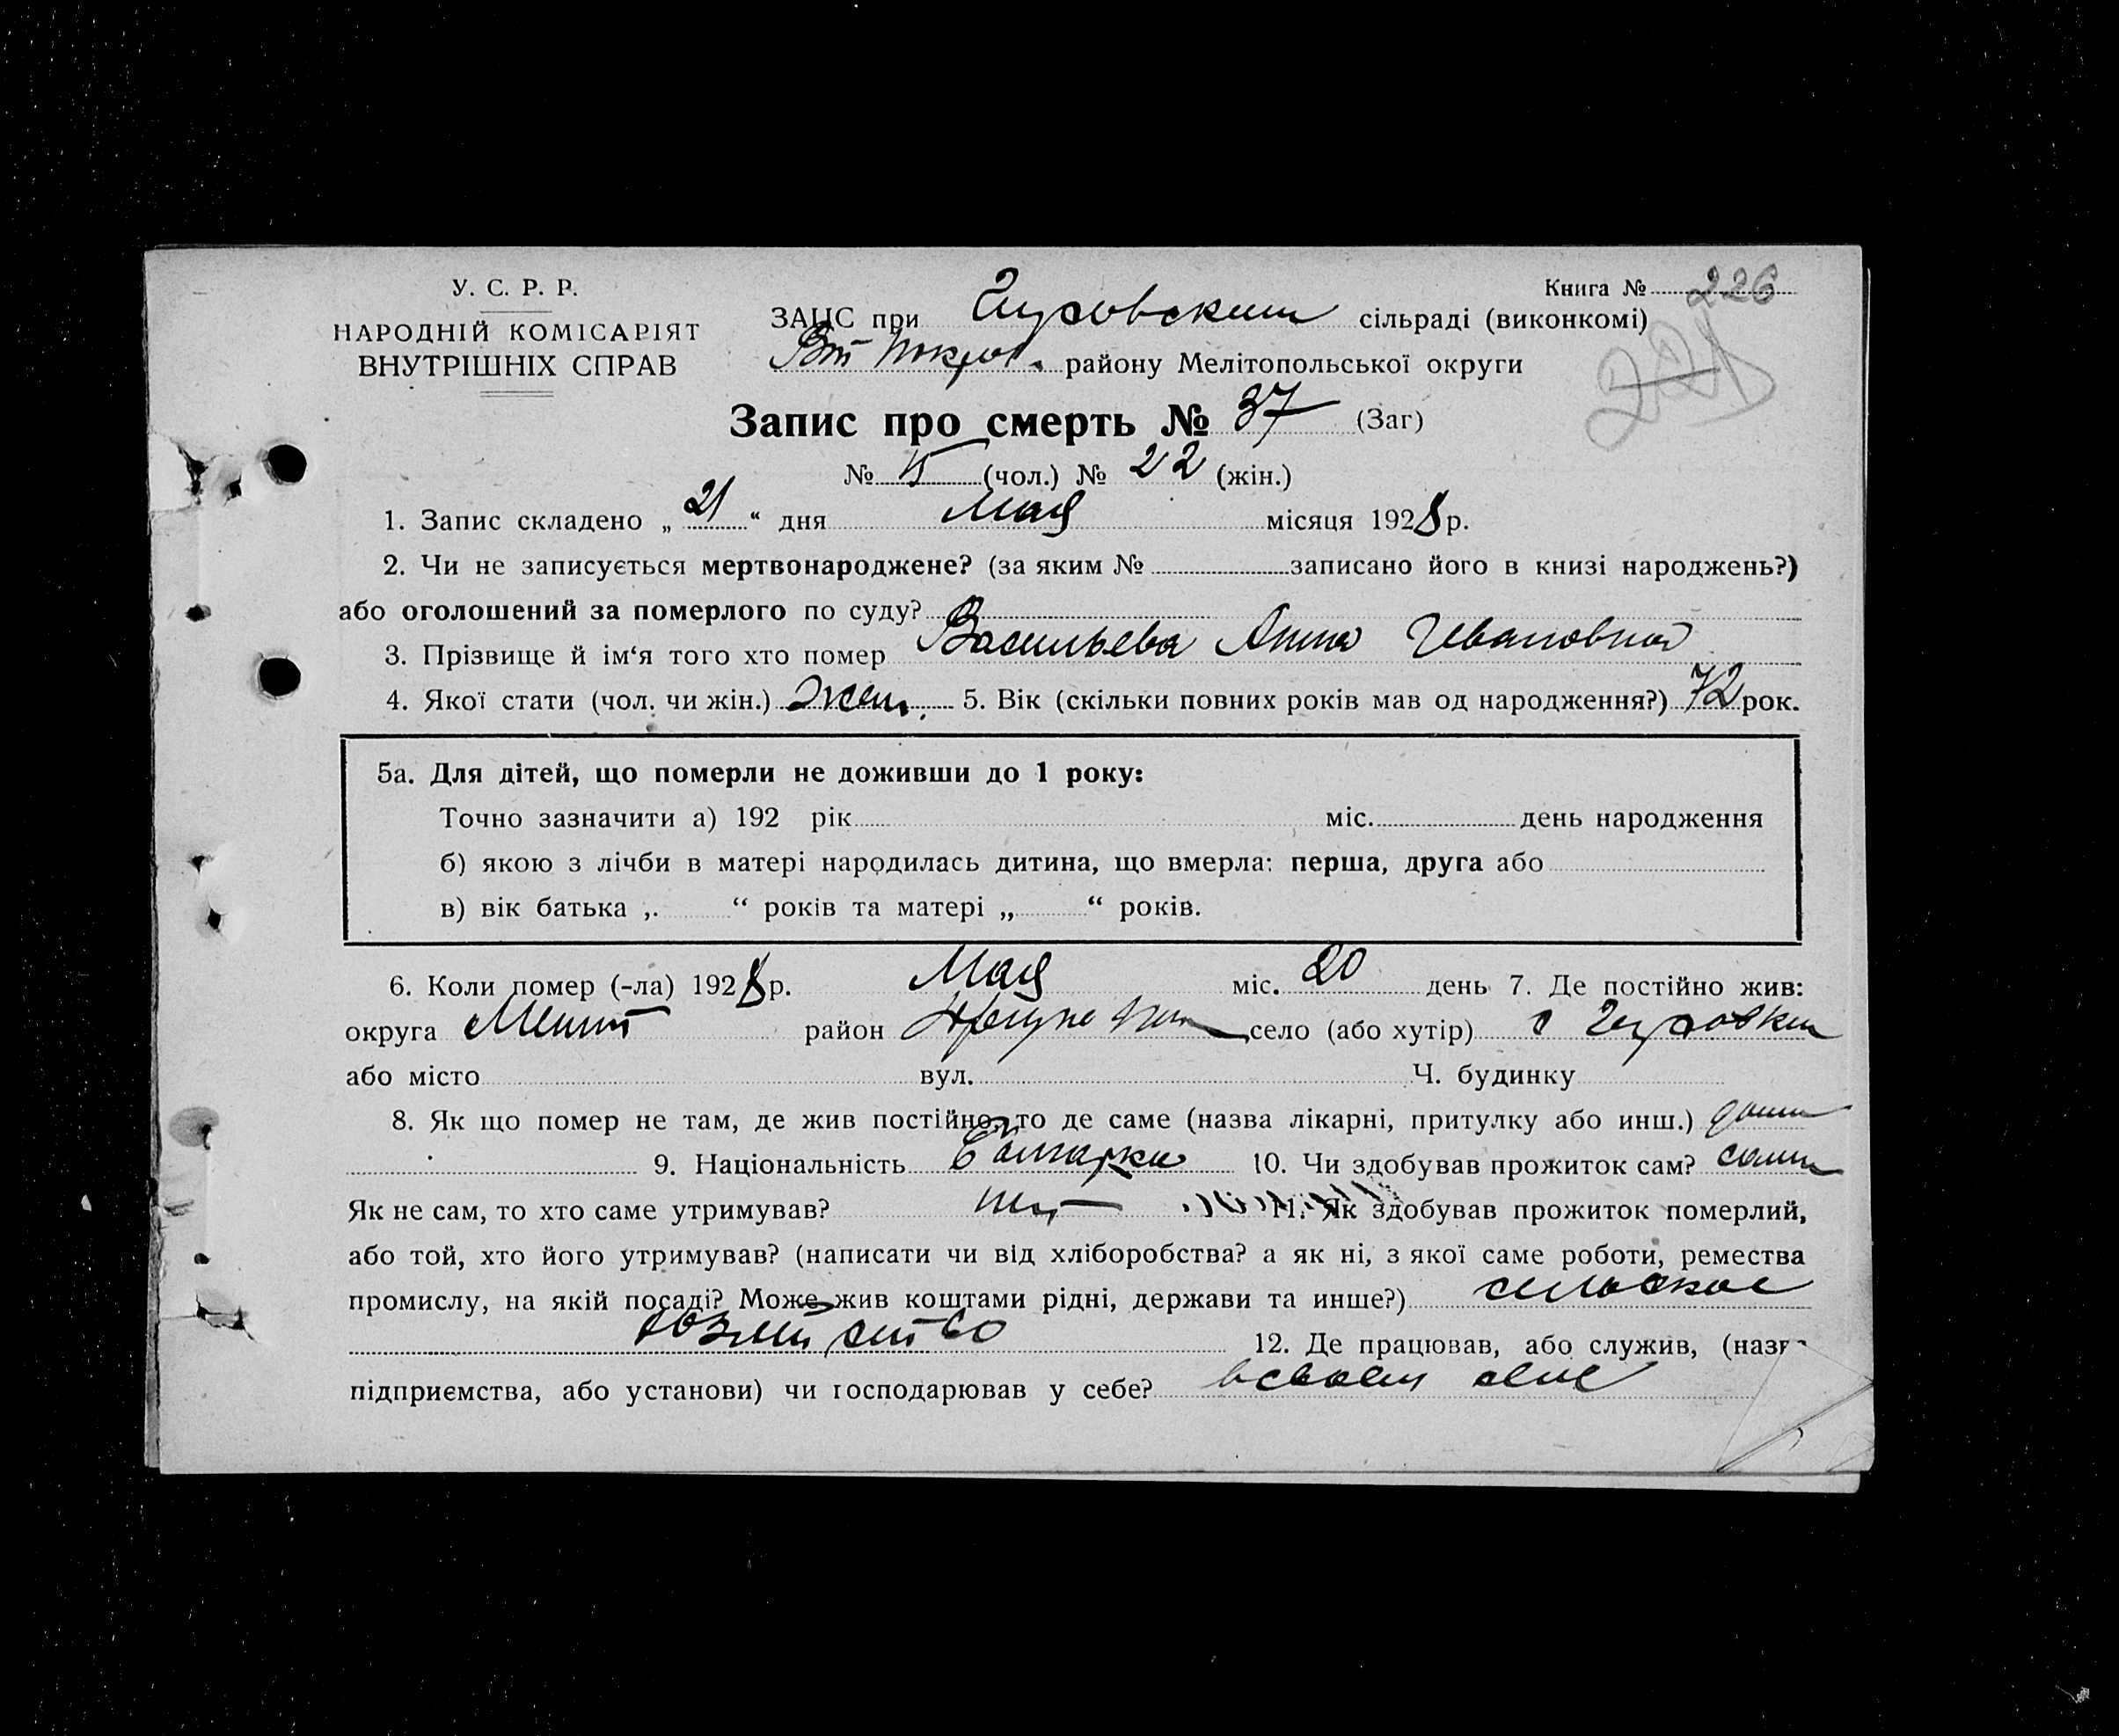 У. С. Р. Р.
НАРОДНІЙ КОМІСАРІЯТ
ВНУТРІШНІХ СПРАВ
Книга № 226
ЗАГС при Гуровским сільраді (виконкомі)
районy Мелітопольської округи
Запис про смерть № 37 (Заг)
№ (чол.) № 22 (жін.)
1. Запис складено „ 21 “ дня Мая місяця 1928 р.
2. Чи не записується мертвонароджене? (за яким № записано його в книзі народжень?)
або оголошений за померлого по суду?
3. Прізвище й ім‘я того хто помер Васильева Анна Ивановна
4. Якої стати (чол. чи жін.) Жен. 5. Вік (скільки повних років мав од народження?) 72 рок.
5а. Для дітей, що померли не доживши до 1 року:
Точно зазначити а) 192 рік міс. день народження
б) якою з лічби в матері народилась дитина, що вмерла: перша, друга або
в) вік батька „ “ років та матері „ “ років.
6. Коли помер (-ла) 1928 р. Мая міс. 20 день 7. Де постійно жив:
округа Мелит район село (або хутір) с Гуровки
або місто вул. Ч. будинку
8. Як що помер не там, де жив постійно, то де саме (назва лікарні, притулку або инш.) дома
9. Національність Болгарка 10. Чи здобував прожиток сам? сама
Як не сам, то хто саме утримував? нет 11. Як здобував прожиток померлий,
або той, хто його утримував? (написати чи від хліборобства? а як ні, з якої саме роботи, ремества
промислу, на якій посаді? Може жив коштами рідні, держави та инше?) сельское
хозяйство 12. Де працював, або служив, (назва
підприємства, або установи) чи господарював у себе? всвоем селе